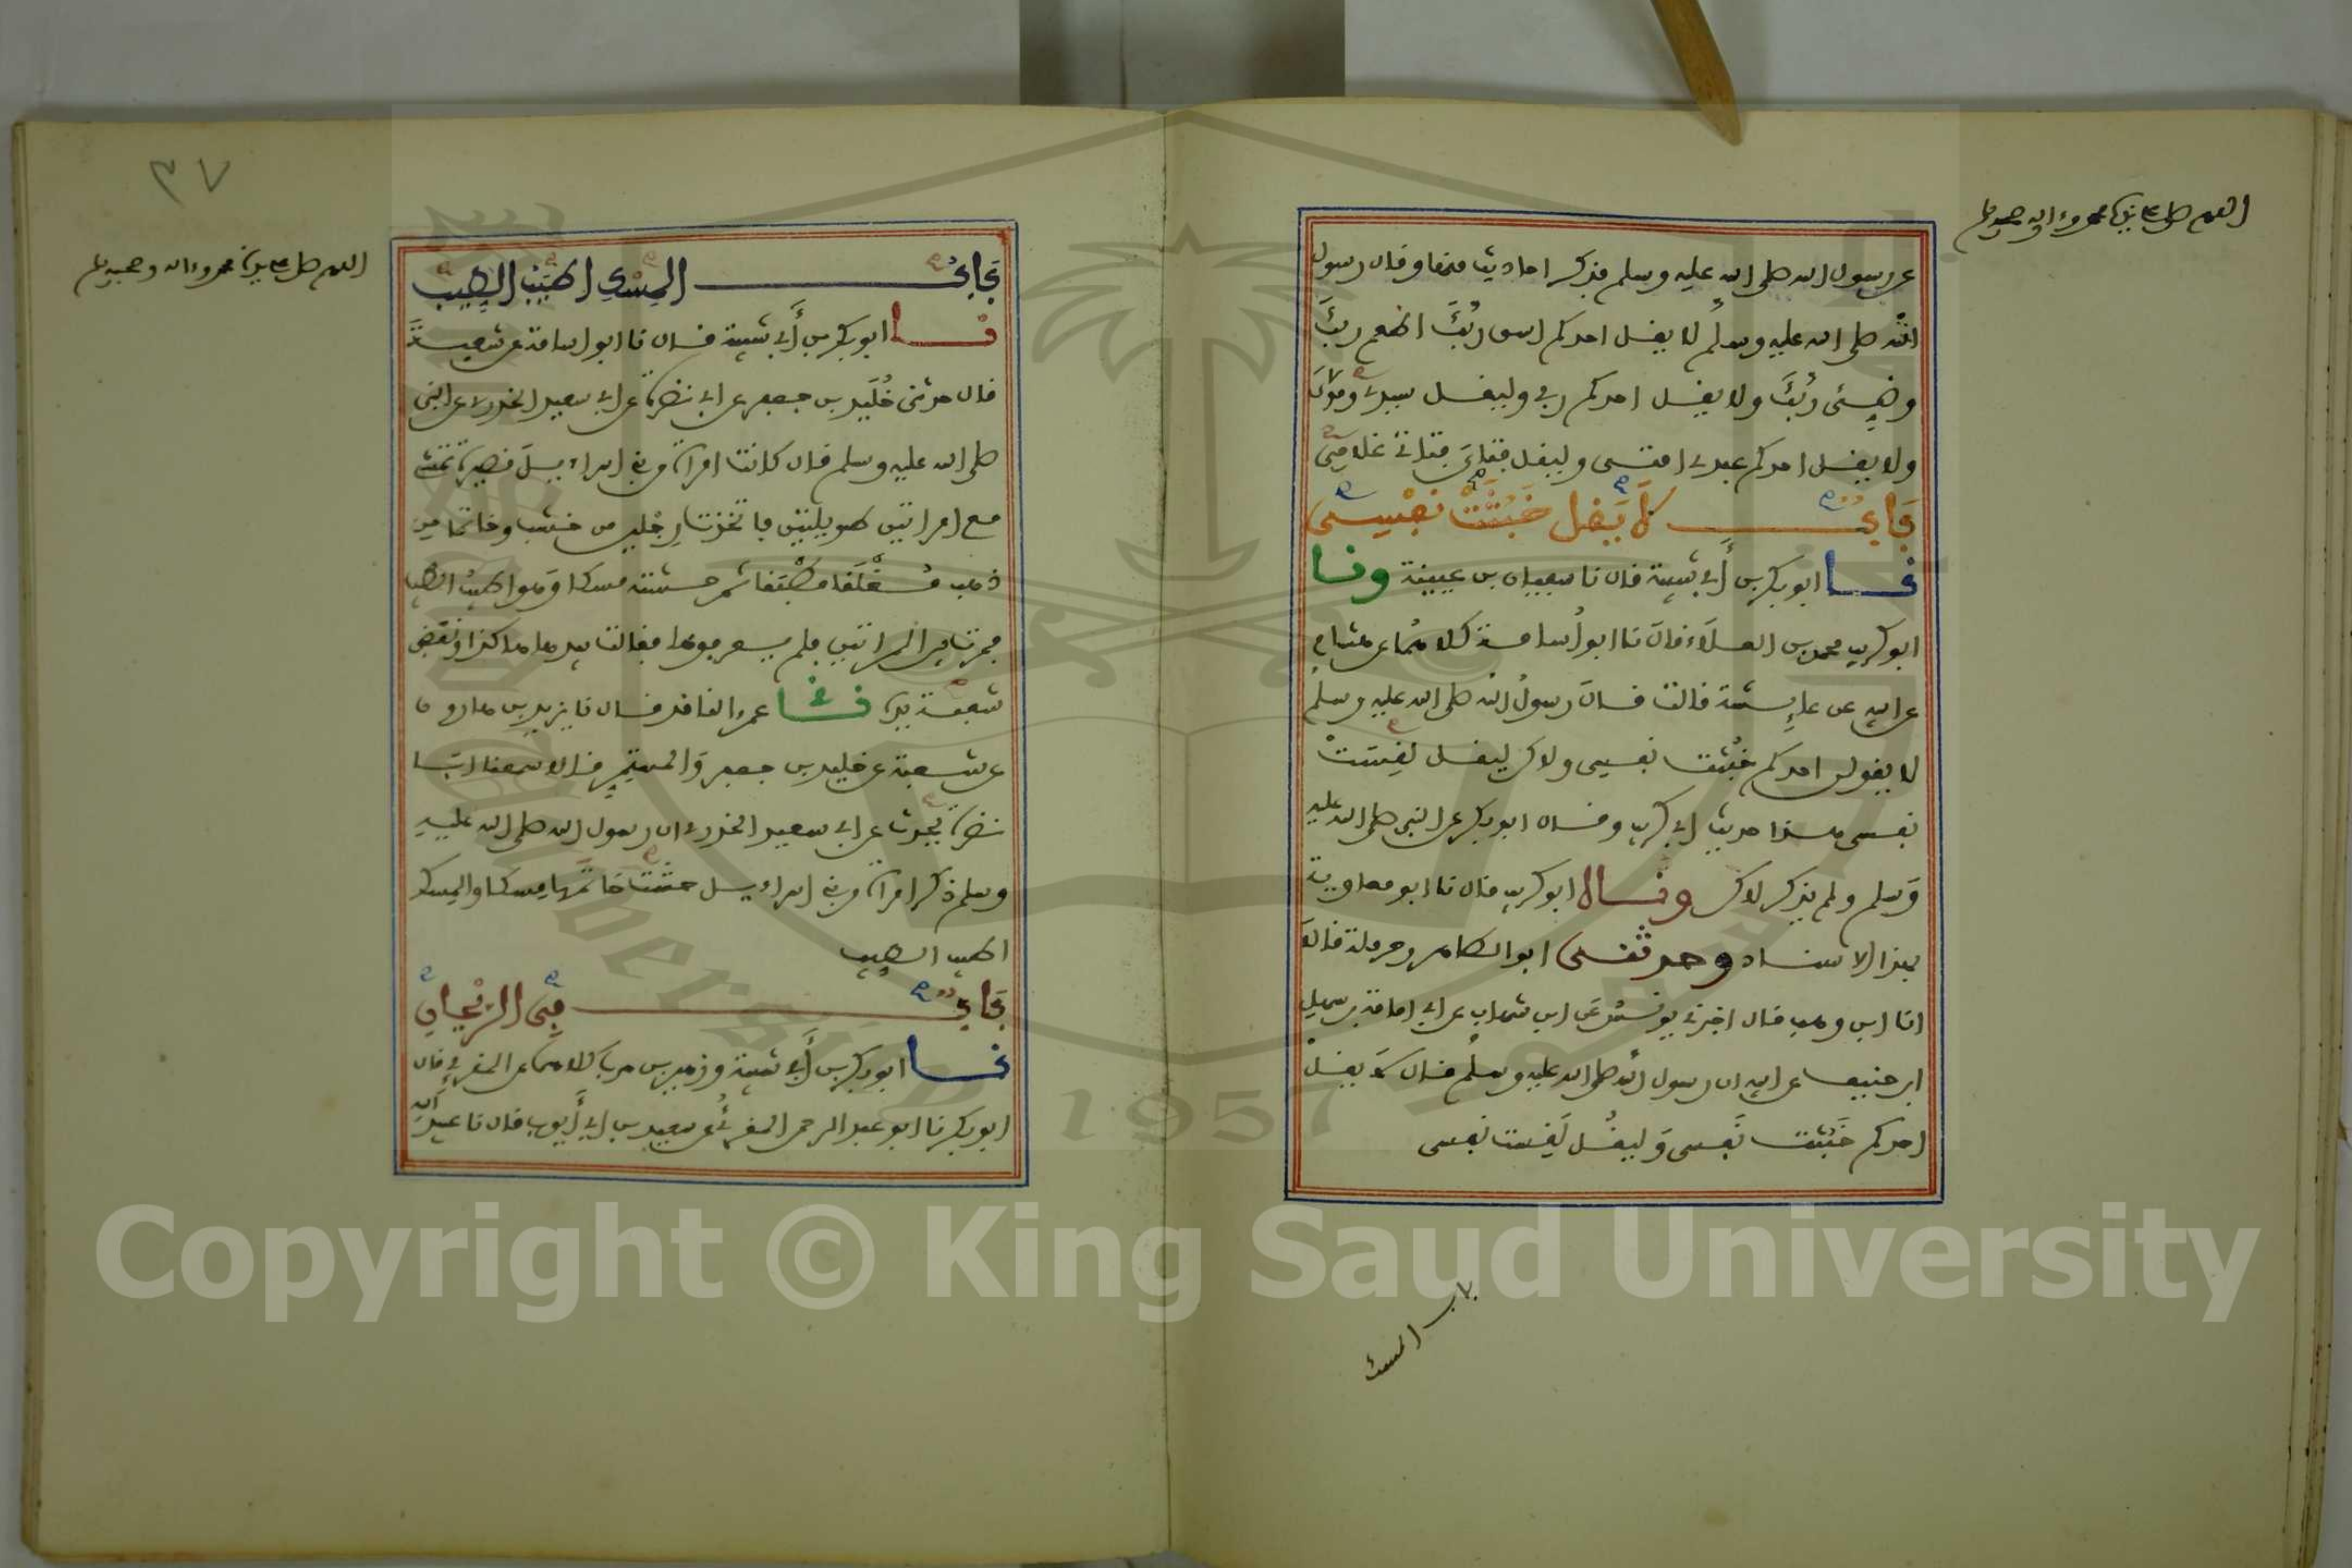 اللهم صل على سيدنا محمد وءاله وصحبه وسلم
عن رسول الله صلى الله عليه وسلم فذكر احاديث منها وقال رسول
الله صلى الله عليه وسلم لا يقل احدكم اسق ربك اطعم ربك
وضئ ربك ولا يقل احدكم ربي وليقل سيدي ومولاي
ولا يقل احدكم عبدي امتي وليقل فتاي فتاتي غلامي
باب لا يقل خبثت نفسي
نا ابو بكر بن أبي شيبة قال نا سفيان بن عيينة ونا
ابو كريب محمد بن العلاء قال نا ابو أسامة كلاهما عن هشام
عن ابيه عن عايشة قالت قال رسول الله صلى الله عليه وسلم
لا يقولن احدكم خبثت نفسي ولاكن ليقل لقست
نفسي هذا حديث ابي كريب وقال ابو بكر عن النبي صلى الله عليه
وسلم ولم يذكر لاكن ونا ابو كريب قال نا ابو معاوية
بهذا الاسناد وحدثني ابو الطاهر وحرملة قالا
انا ابن وهب قال اخبرني يونس عن ابن شهاب عن ابي امامة بن سهل
ابن حنيف عن ابيه ان رسول الله صلى الله عليه وسلم قال لا يقل
احدكم خبثت نفسي وليقل لقست نفسي
باب المسك
٣٧
اللهم صل على سيدنا محمد وءاله وصحبه وسلم
باب المسك اطيب الطيب
نا ابو بكر بن أبي شيبة قال نا ابو اسامة عن شعبة
قال حدثني خليد بن جعفر عن ابي نضرة عن ابي سعيد الخدري عن النبي
صلى الله عليه وسلم قال كانت امراة من بني اسراءيل قصيرة تمشي
مع امراتين طويلتين فاتخذت رجلين من خشب وخاتما من
ذهب مغلقا مطبقا ثم حشته مسكا وهو اطيب الطيب
فمرت بين المراتين فلم يعرفوها فقالت بيدها هاكذا ونفض
شعبة يده نا عمرو الناقد قال نا يزيد بن هارون
عن شعبة عن خليد بن جعفر والمستمر قالا سمعنا ابا
نضرة يحدث عن ابي سعيد الخدري ان رسول الله صلى الله عليه
وسلم ذكر امراة من بني اسراءيل حشت خاتمها مسكا والمسك
اطيب الطيب
باب في الريحان
نا ابو بكر بن أبي شيبة وزهير بن حرب كلاهما عن المقرئ قال
ابو بكر نا ابو عبد الرحمن المقرئ عن سعيد بن ابي أيوب قال نا عبيد الله
Copyright © King Saud University
1957